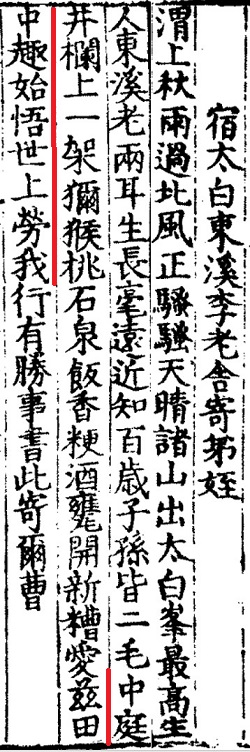 宿太白東溪李老舍寄弟姪
渭上秋雨過北風正騷騷天晴諸山出太白峯最高主
人東溪老兩耳生長毫遠近知百歲子孫皆二毛中庭
井欄上一架獼猴桃石泉飯香粳酒甕開新糟愛茲田
中趣始悟世上勞我行有勝事書此寄爾曹